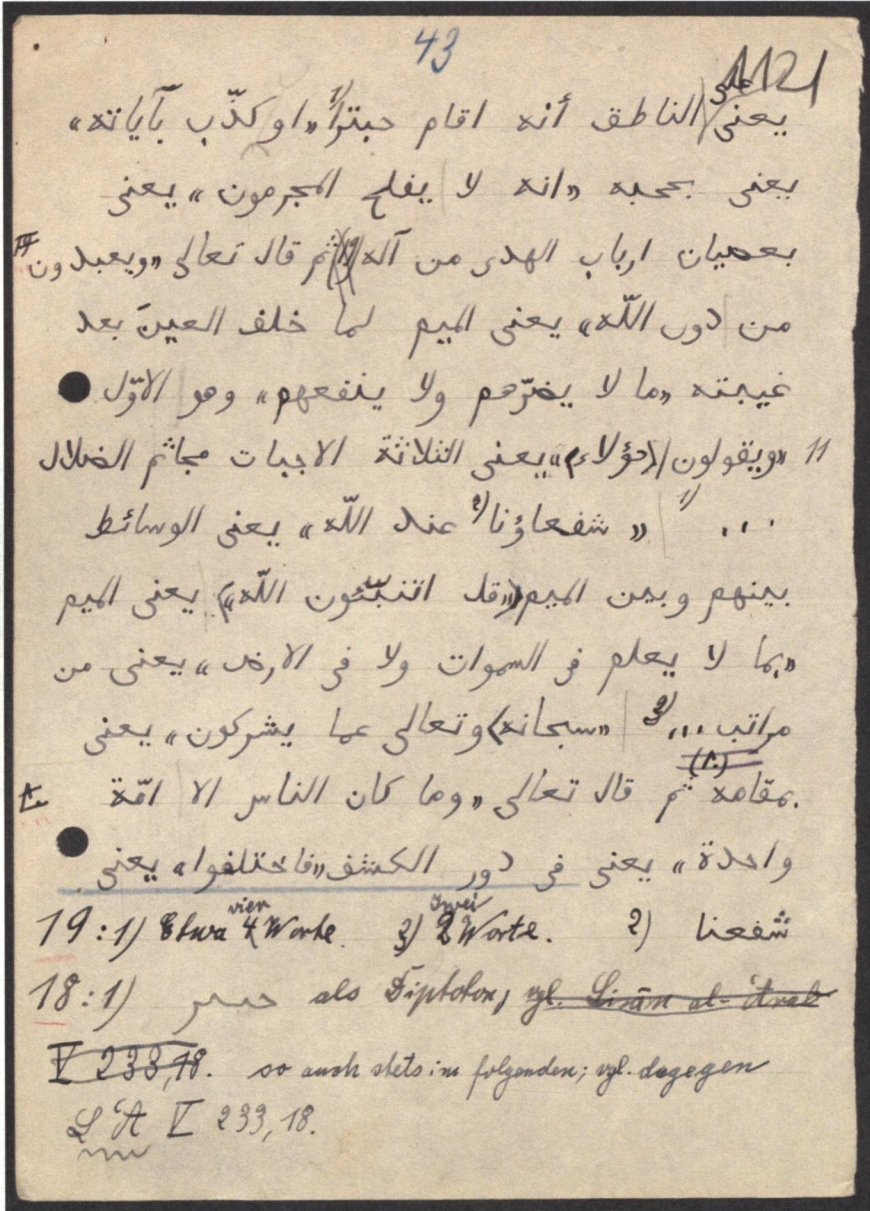 43
1121
يعنى على الناطق أنه اقام حبترا 1) «او كذّب بآياته»
يعنى بحجبه «انه لا يفلح المجرمون» يعنى
بعصيان ارباب الهدى من آله ثم قال تعالى «ويعبدون
من دون اللّه» يعنى الميم لما خلف العينَ بعد
غيبته «ما لا يضرّهم ولا ينفعهم» وهو الاوّل
11 «ويقولون هؤلاء» يعنى الثلاثة الاجبات مجاثم الضلال
... 1) «شفعاؤنا 2) عند اللّه» يعنى الوسائط
بينهم وبين الميم «قل اتنبّئون اللّه» يعنى الميم
«بما لا يعلم فى السموات ولا فى الارض» يعنى من
مراتب ... 3) «سبحانه وتعالى عما يشركون» يعنى
بمقامه (١٠) ثم قال تعالى «وما كان الناس الا امّة
واحدة» يعنى فى دور الكشف «فاختلفوا» يعنى
19: 1) Etwa vier Worte. 3) zwei Worte. 2) شفعنا
18: 1) حبتر als Diptoton, vgl. Lisān al-ʿArab
V 233,18. so auch stets im folgenden; vgl. dagegen
LʿA V 233,18.